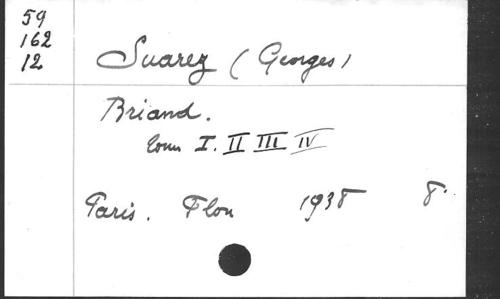 59
162
12
Suarez (Georges)
Briand.
Tom I. II III IV
Paris. Plon 1938 8°.